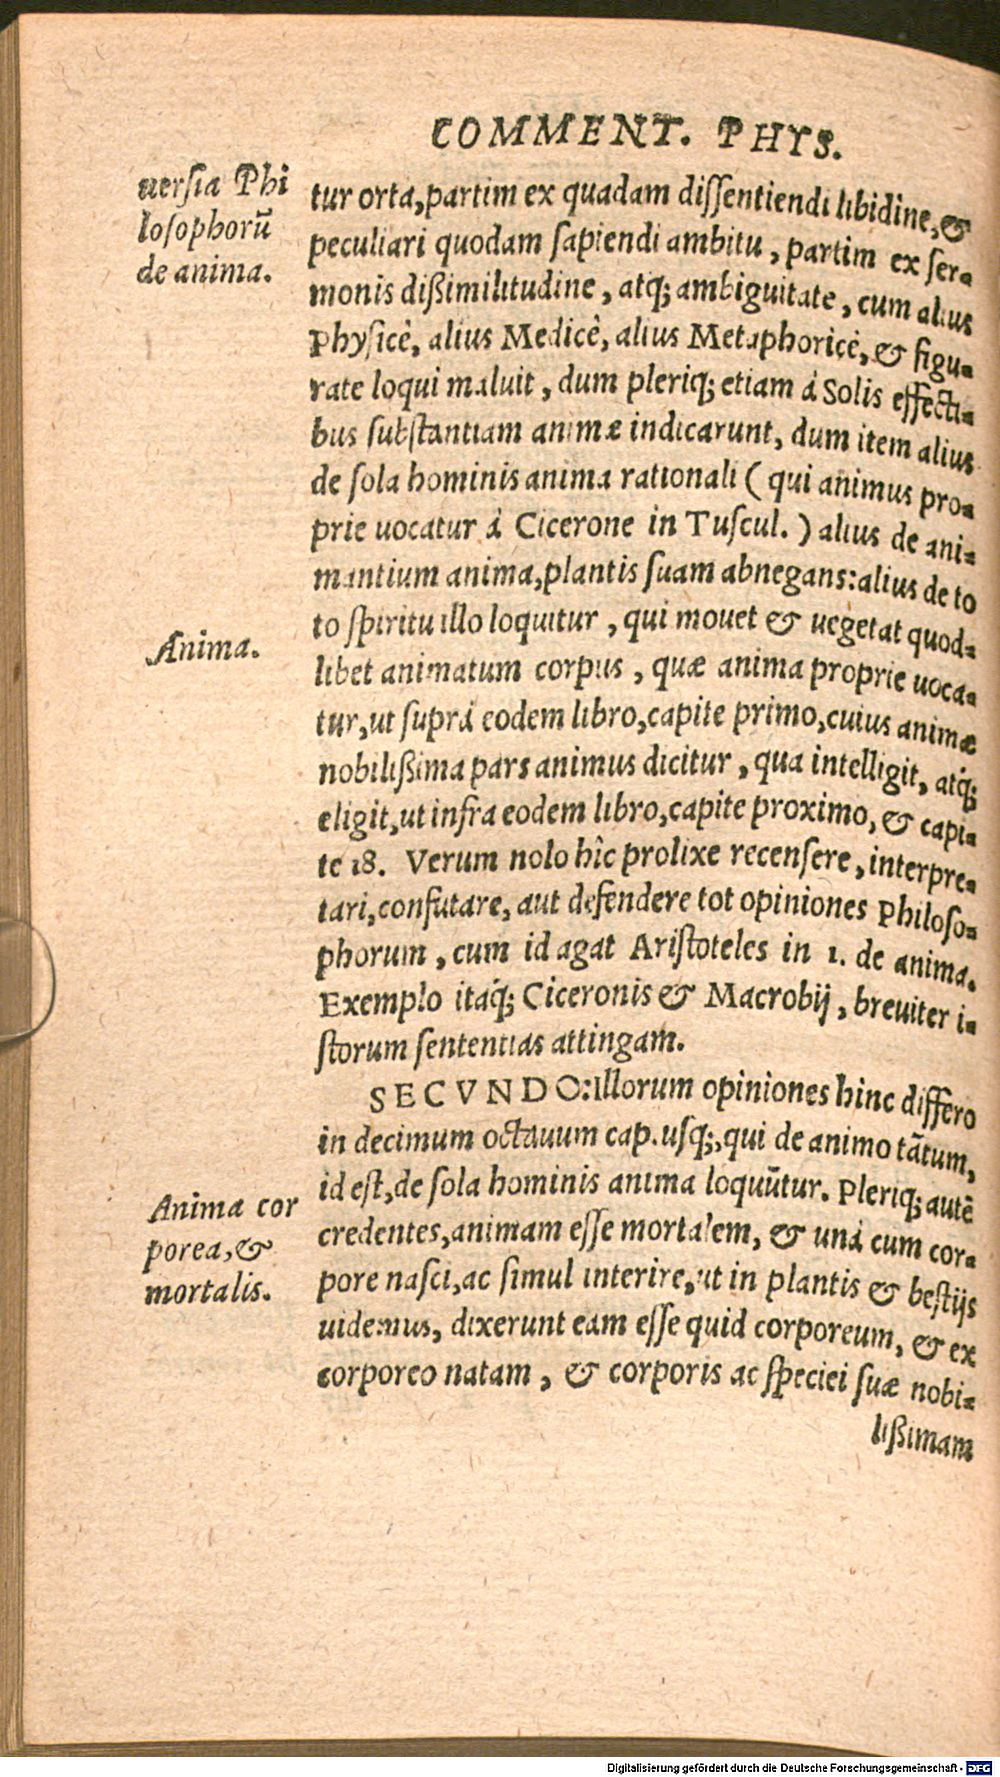 COMMENT. PHYS.
uersia Phi
losophorũ
de anima.
tur orta, partim ex quadam dissentiendi libidine, &
peculiari quodam sapiendi ambitu, partim ex ser-
monis dißimilitudine, atq; ambiguitate, cum alius
Physicè, alius Medicè, alius Metaphoricè, & figu-
rate loqui maluit, dum pleriq; etiam à Solis effecti-
bus substantiam animæ indicarunt, dum item alius
de sola hominis anima rationali ( qui animus pro-
prie uocatur à Cicerone in Tuscul. ) alius de ani-
mantium anima, plantis suam abnegans: alius de to
to spiritu illo loquitur, qui mouet & uegetat quod-
Anima.
libet animatum corpus, quæ anima proprie uoca-
tur, ut suprà eodem libro, capite primo, cuius animæ
nobilißima pars animus dicitur, qua intelligit, atq;
eligit, ut infra eodem libro, capite proximo, & capi-
te 18. Verum nolo hîc prolixe recensere, interpre-
tari, confutare, aut defendere tot opiniones Philoso-
phorum, cum id agat Aristoteles in 1. de anima.
Exemplo itaq; Ciceronis & Macrobij, breuiter i-
storum sententias attingam.
SECVNDO: Illorum opiniones hinc differo
in decimum octauum cap. usq;, qui de animo tãtum,
id est, de sola hominis anima loquũtur. Pleriq; autẽ
Anima cor
porea, &
mortalis.
credentes, animam esse mortalem, & unà cum cor-
pore nasci, ac simul interire, ut in plantis & bestijs
uidemus, dixerunt eam esse quid corporeum, & ex
corporeo natam, & corporis ac speciei suæ nobi-
lißimam
Digitalisierung gefördert durch die Deutsche Forschungsgemeinschaft - DFG